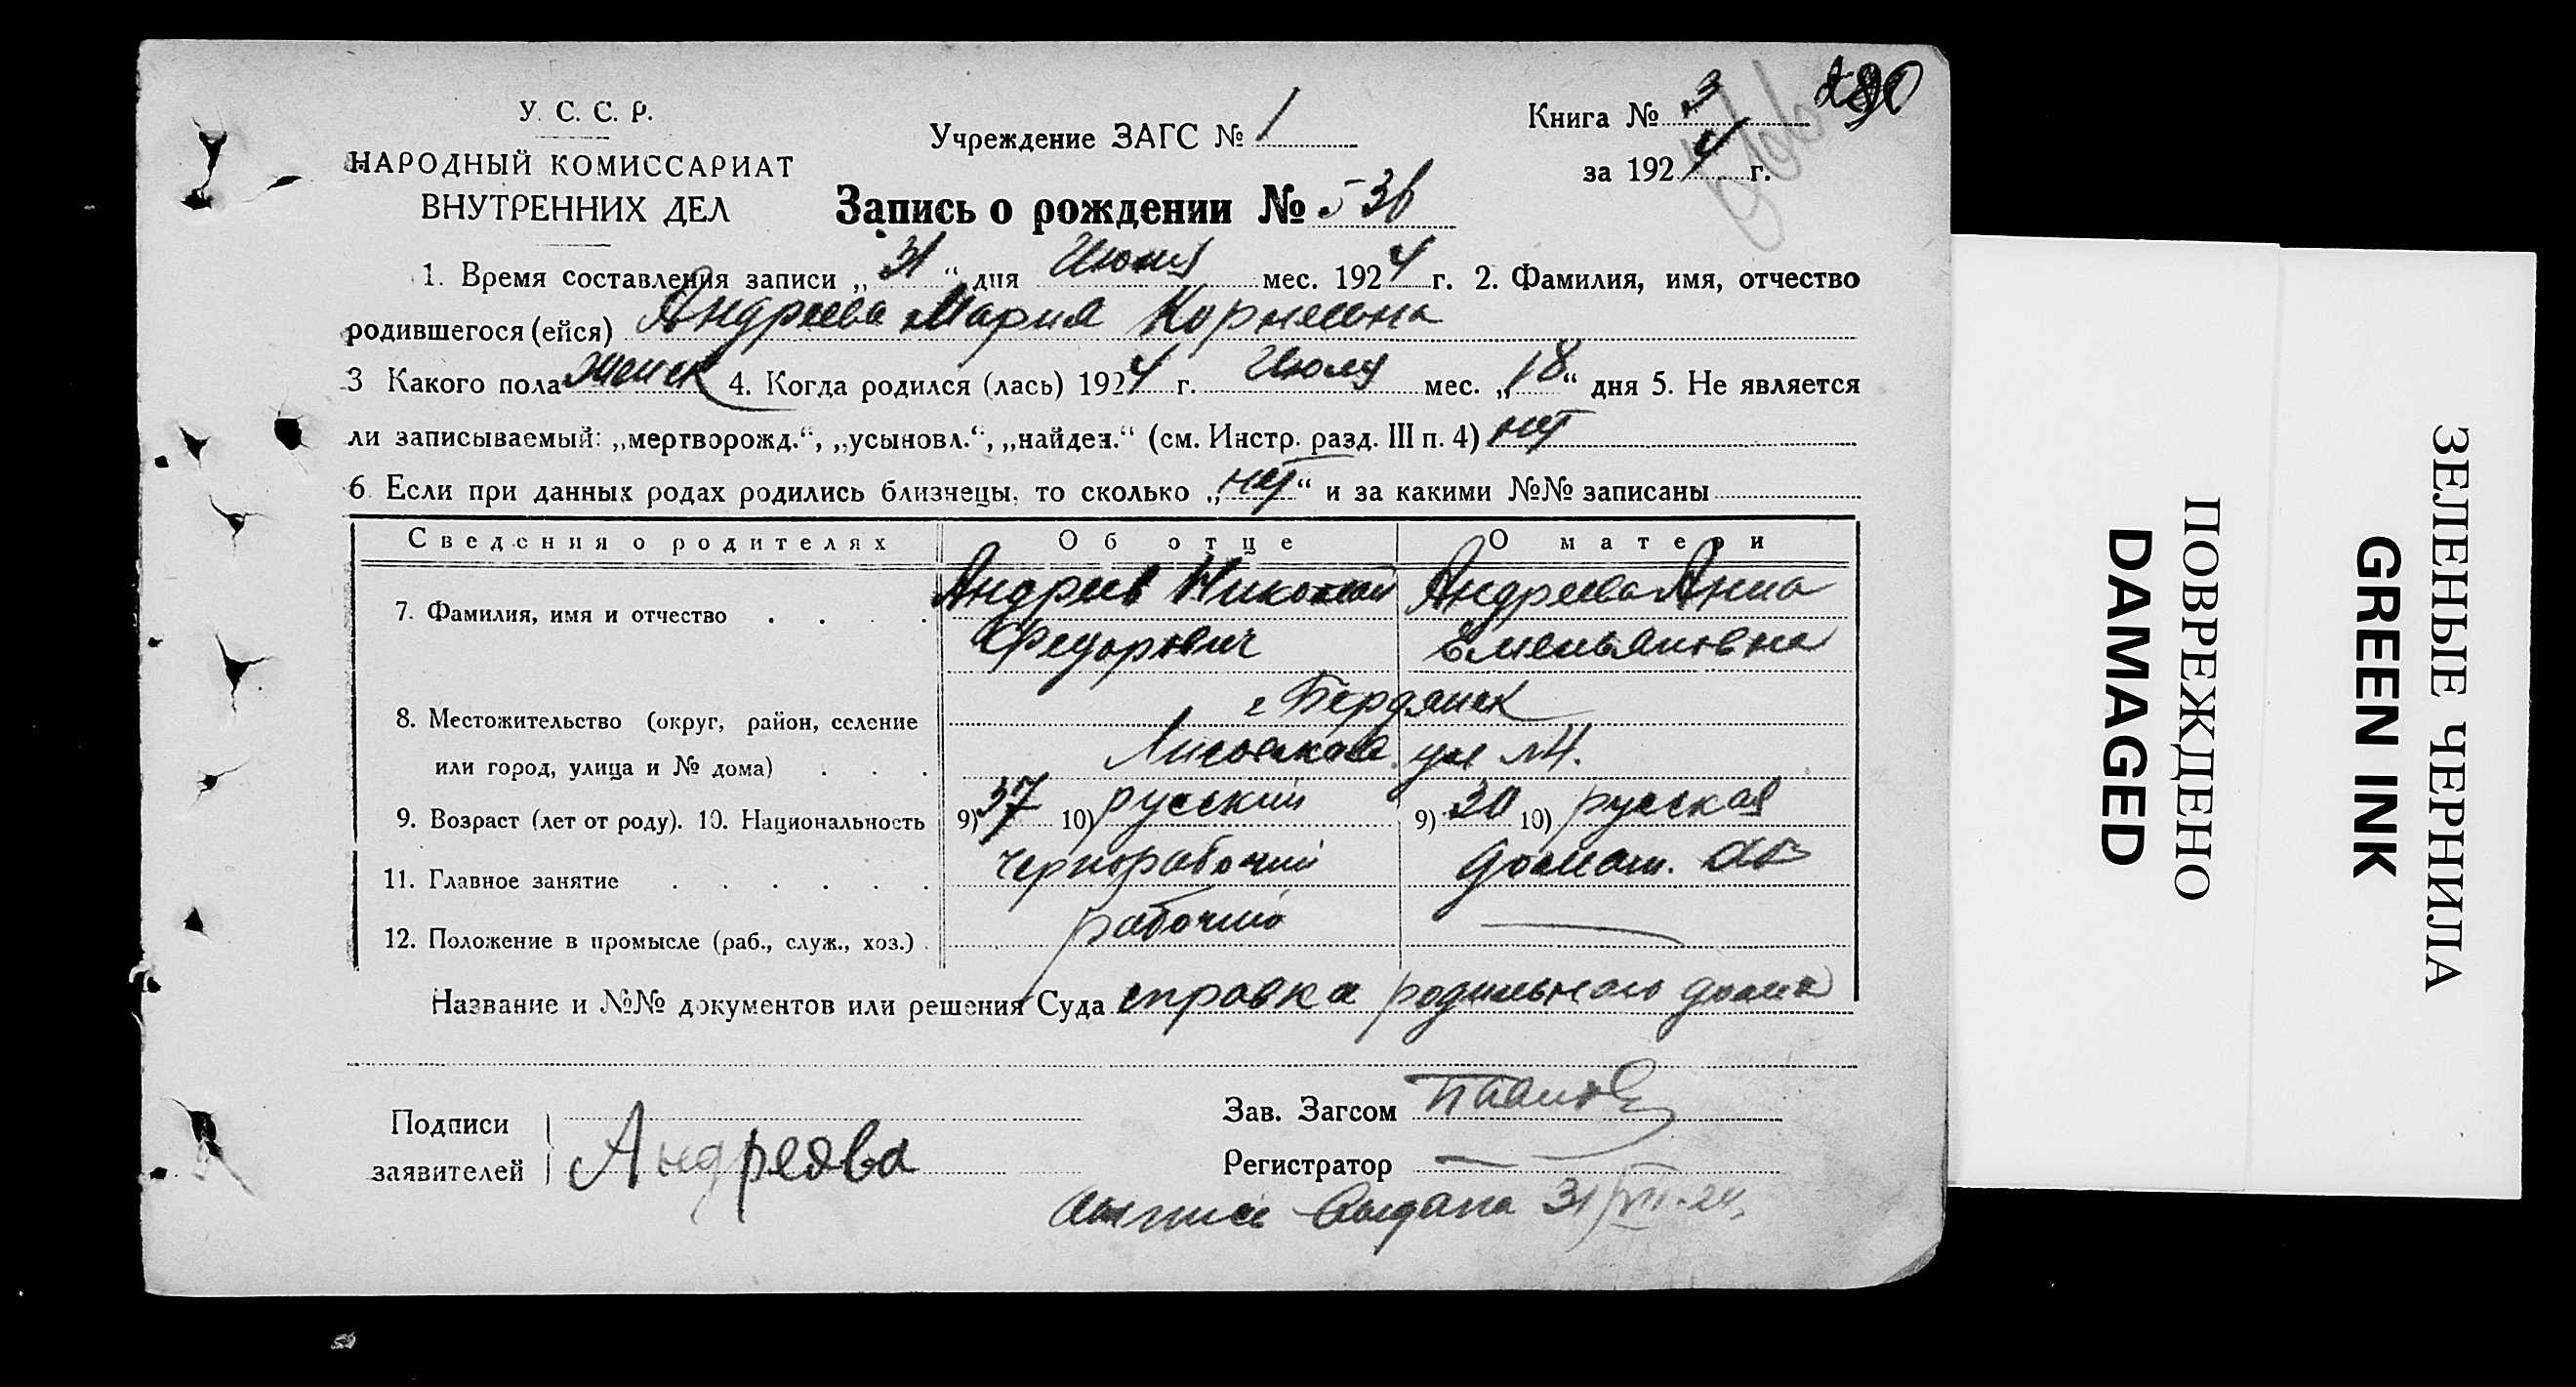 У. С. С. Р.
НАРОДНЫЙ КОМИССАРИАТ
ВНУТРЕННИХ ДЕЛ
Учреждение ЗАГС № 1
Книга № 3
за 1924 г.
Запись о рождении № 536
1. Время составления записи „31“ дня Июля мес. 1924 г. 2. Фамилия, имя, отчество
родившегося (ейся) Андреева Мария
3 Какого пола женск 4. Когда родился (лась) 1924 г. Июля мес. „18“ дня 5. Не является
ли записываемый: „мертворожд.“, „усыновл.“, „найден.“ (см. Инстр. разд. III п. 4) нет
6 Если при данных родах родились близнецы, то сколько „нет“ и за какими №№ записаны
Сведения о родителях Об отце О матери
7. Фамилия, имя и отчество . . . . Андреев Николай Андреева Анна
Федорович Емельяновна
8. Местожительство (округ, район, селение г Бердянск
или город, улица и № дома) . . . ул
9. Возраст (лет от роду). 10. Национальность 9) 37 10) русский 9) 30 10) русская
11. Главное занятие . . . . . . чернорабочий домаш.
12. Положение в промысле (раб., служ., хоз.) . рабочий —
Название и №№ документов или решения Суда справка родильного дома
Подписи
заявителей Андреева
Зав. Загсом
Регистратор —
выдана 31/VII-24.
ПОВРЕЖДЕНО
DAMAGED
ЗЕЛЕНЫЕ ЧЕРНИЛА
GREEN INK